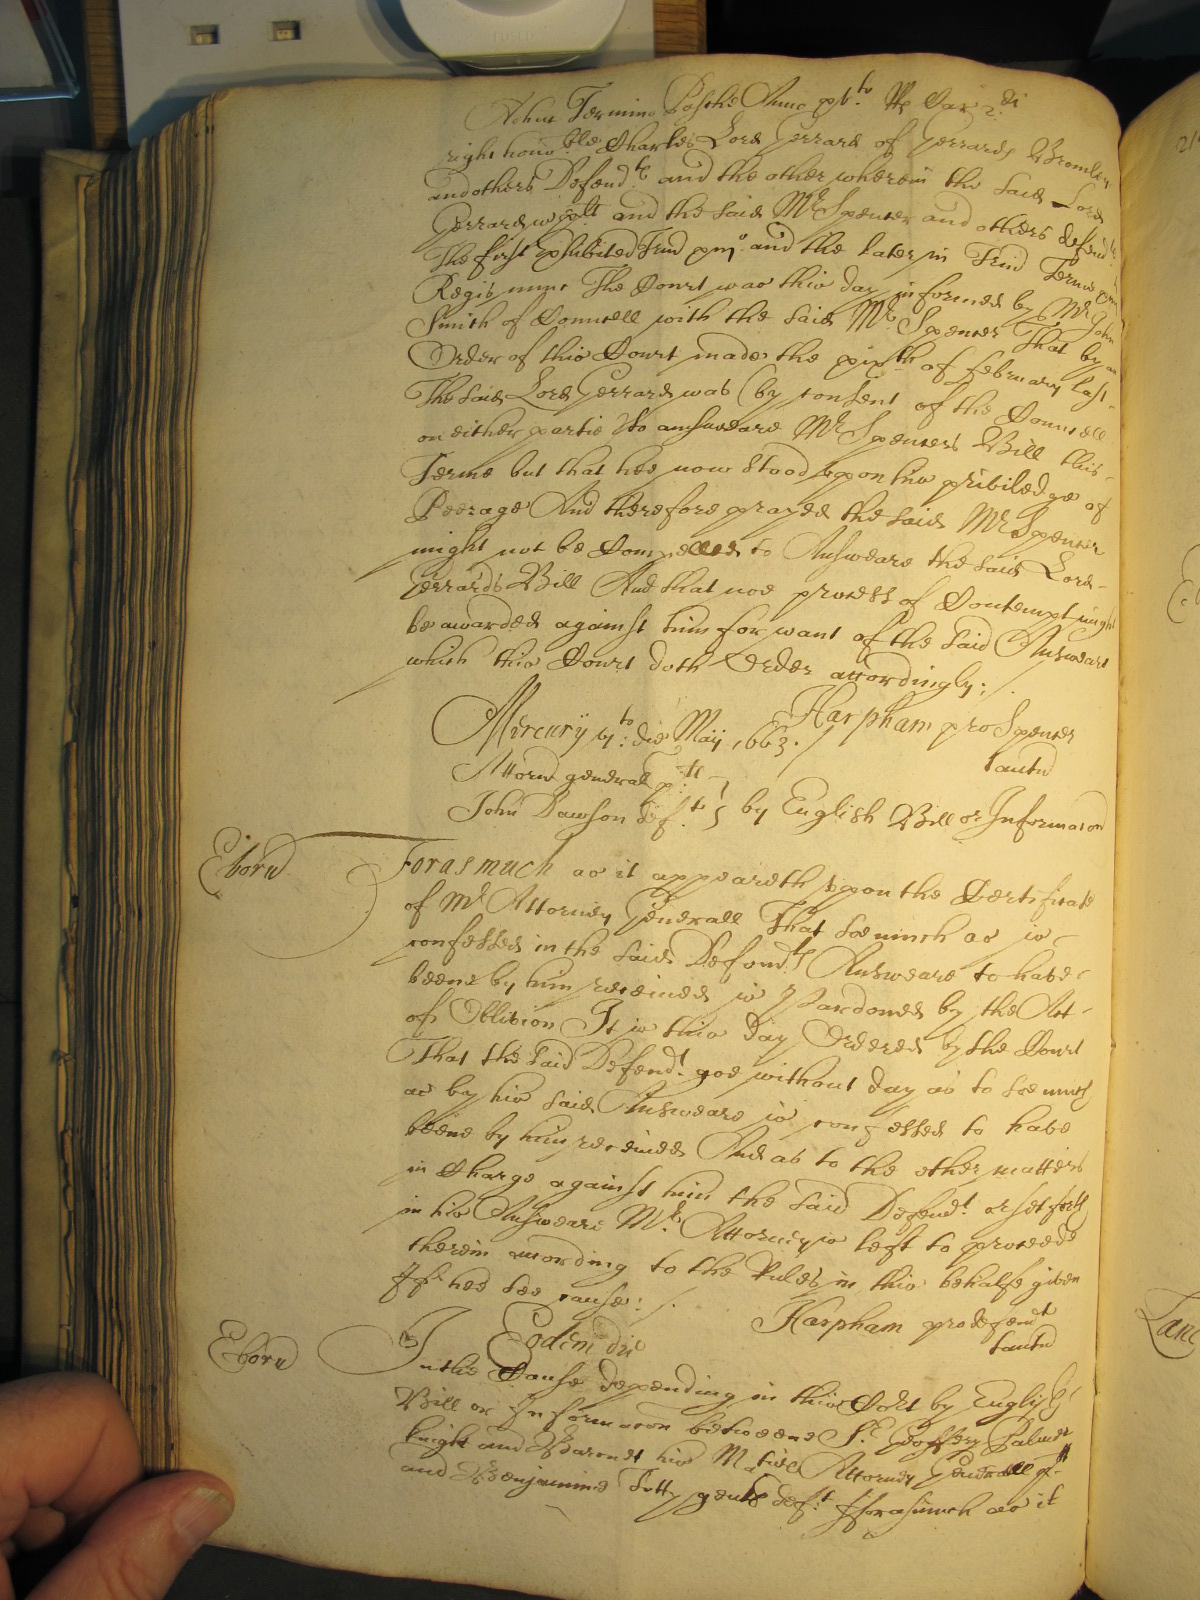 Adhuc Termino Pasche Anno xvto R Car 2di
right honoble Charles Lord Gerrard of Gerrards Bromley
and others Defendts and the other wherein the said Lord
Gerrard is plt and the said Mr Spencer and others defendts
The first exhibited Trin and the later in Trin Terme
Regis nunc The Court was this day informed by Mr John
Smith of Councell with the said Mr Spencer That by an
Order of this Court made the sixth of February last
The said Lord Gerrard was (by consent of the Councell
on either partie) to answeare Mr Spencers Bill this
Terme but that hee now stood upon his priviledge of
Peerage And therefore prayed the said Mr Spencer
might not be Compelled to Answeare the said Lord
Gerrards Bill And that noe processe of Contempt might
be awarded against him for want of the said Answeare
which this Court doth Order accordingly:/.
Harpham pro Spencer
Mercurij die Maij 1663./
Attorn generall plt
John Dawson deft } by English Bill or Informacon
Eborn
Forasmuch as it appeareth upon the Certificate
of Mr Attorney Generall That soe much as is
confessed in the said Defendts Answeare to have
beene by him received is Pardoned by the Act
of Oblivion It is this day Ordered by the Court
That the said Defendt goe without day as to soe much
as by his said Answeare is confessed to have
beene by him received And as to the other matters
in Charge against him the said Defendt or set forth
in his Answeare Mr Attorney is left to proceede
therein according to the Rules in this behalfe given
If hee see cause:/.
Harpham pro defendt
Eodem die
Eborn
In the Cause depending in this Cort by English
Bill or Informacon betweene Sr Geoffery Palmer
knight and Baronet his Maties Attorney Generall plt
and Benjamine gent deft fforasmuch as it